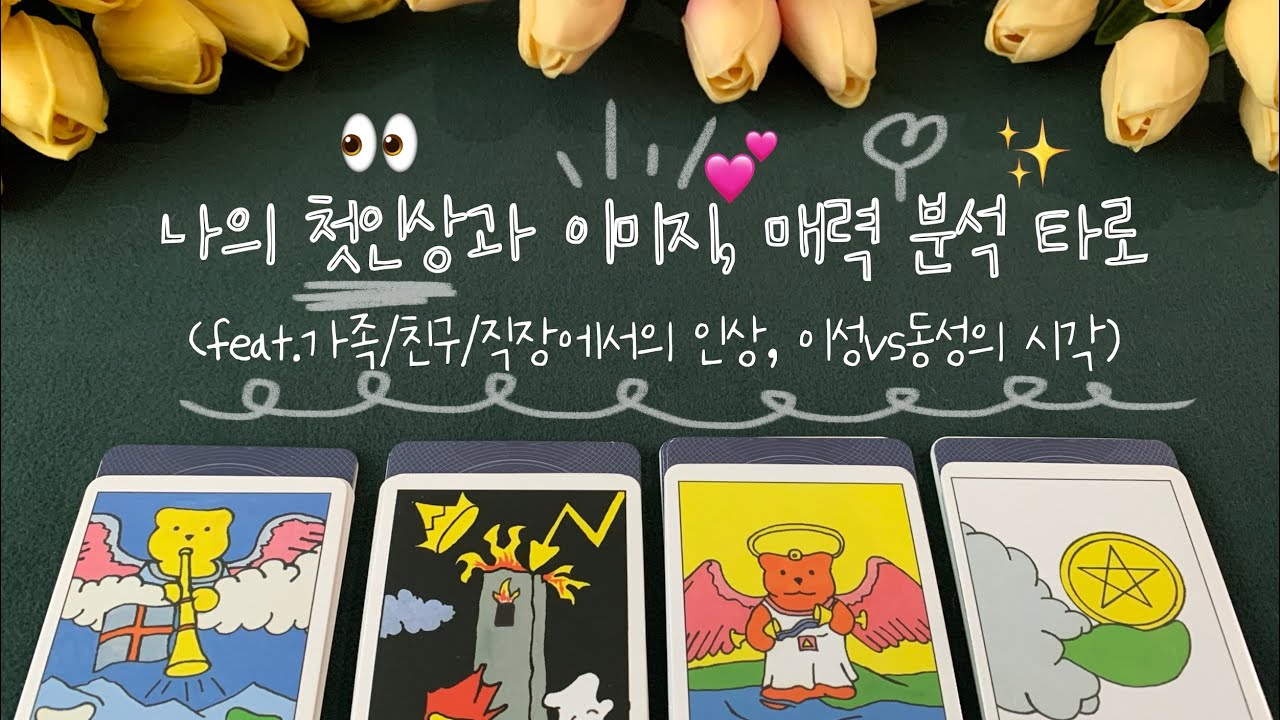 나의 첫인상과 이미지, 매력 분석 타로
(feat.가족/친구/직장에서의 인상, 이성vs동성의 시각)